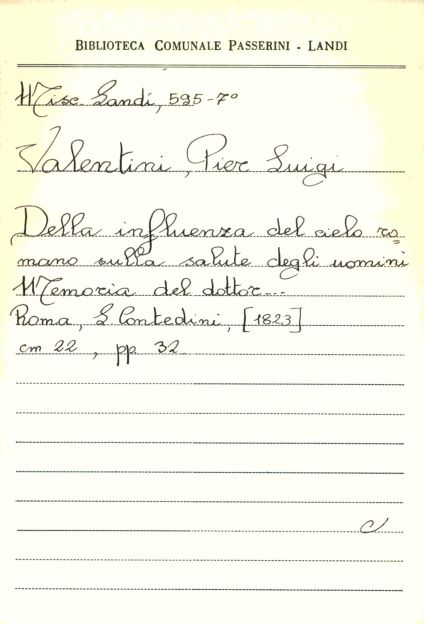 BIBLIOTECA COMUNALE PASSERINI - LANDI
Misc. Landi, 595-7°
Valentini, Pier Luigi
Della influenza del cielo ro=
mano sulla salute degli uomini
Memoria del dottor...
Roma, L Contedini, [1823]
cm 22, pp. 32